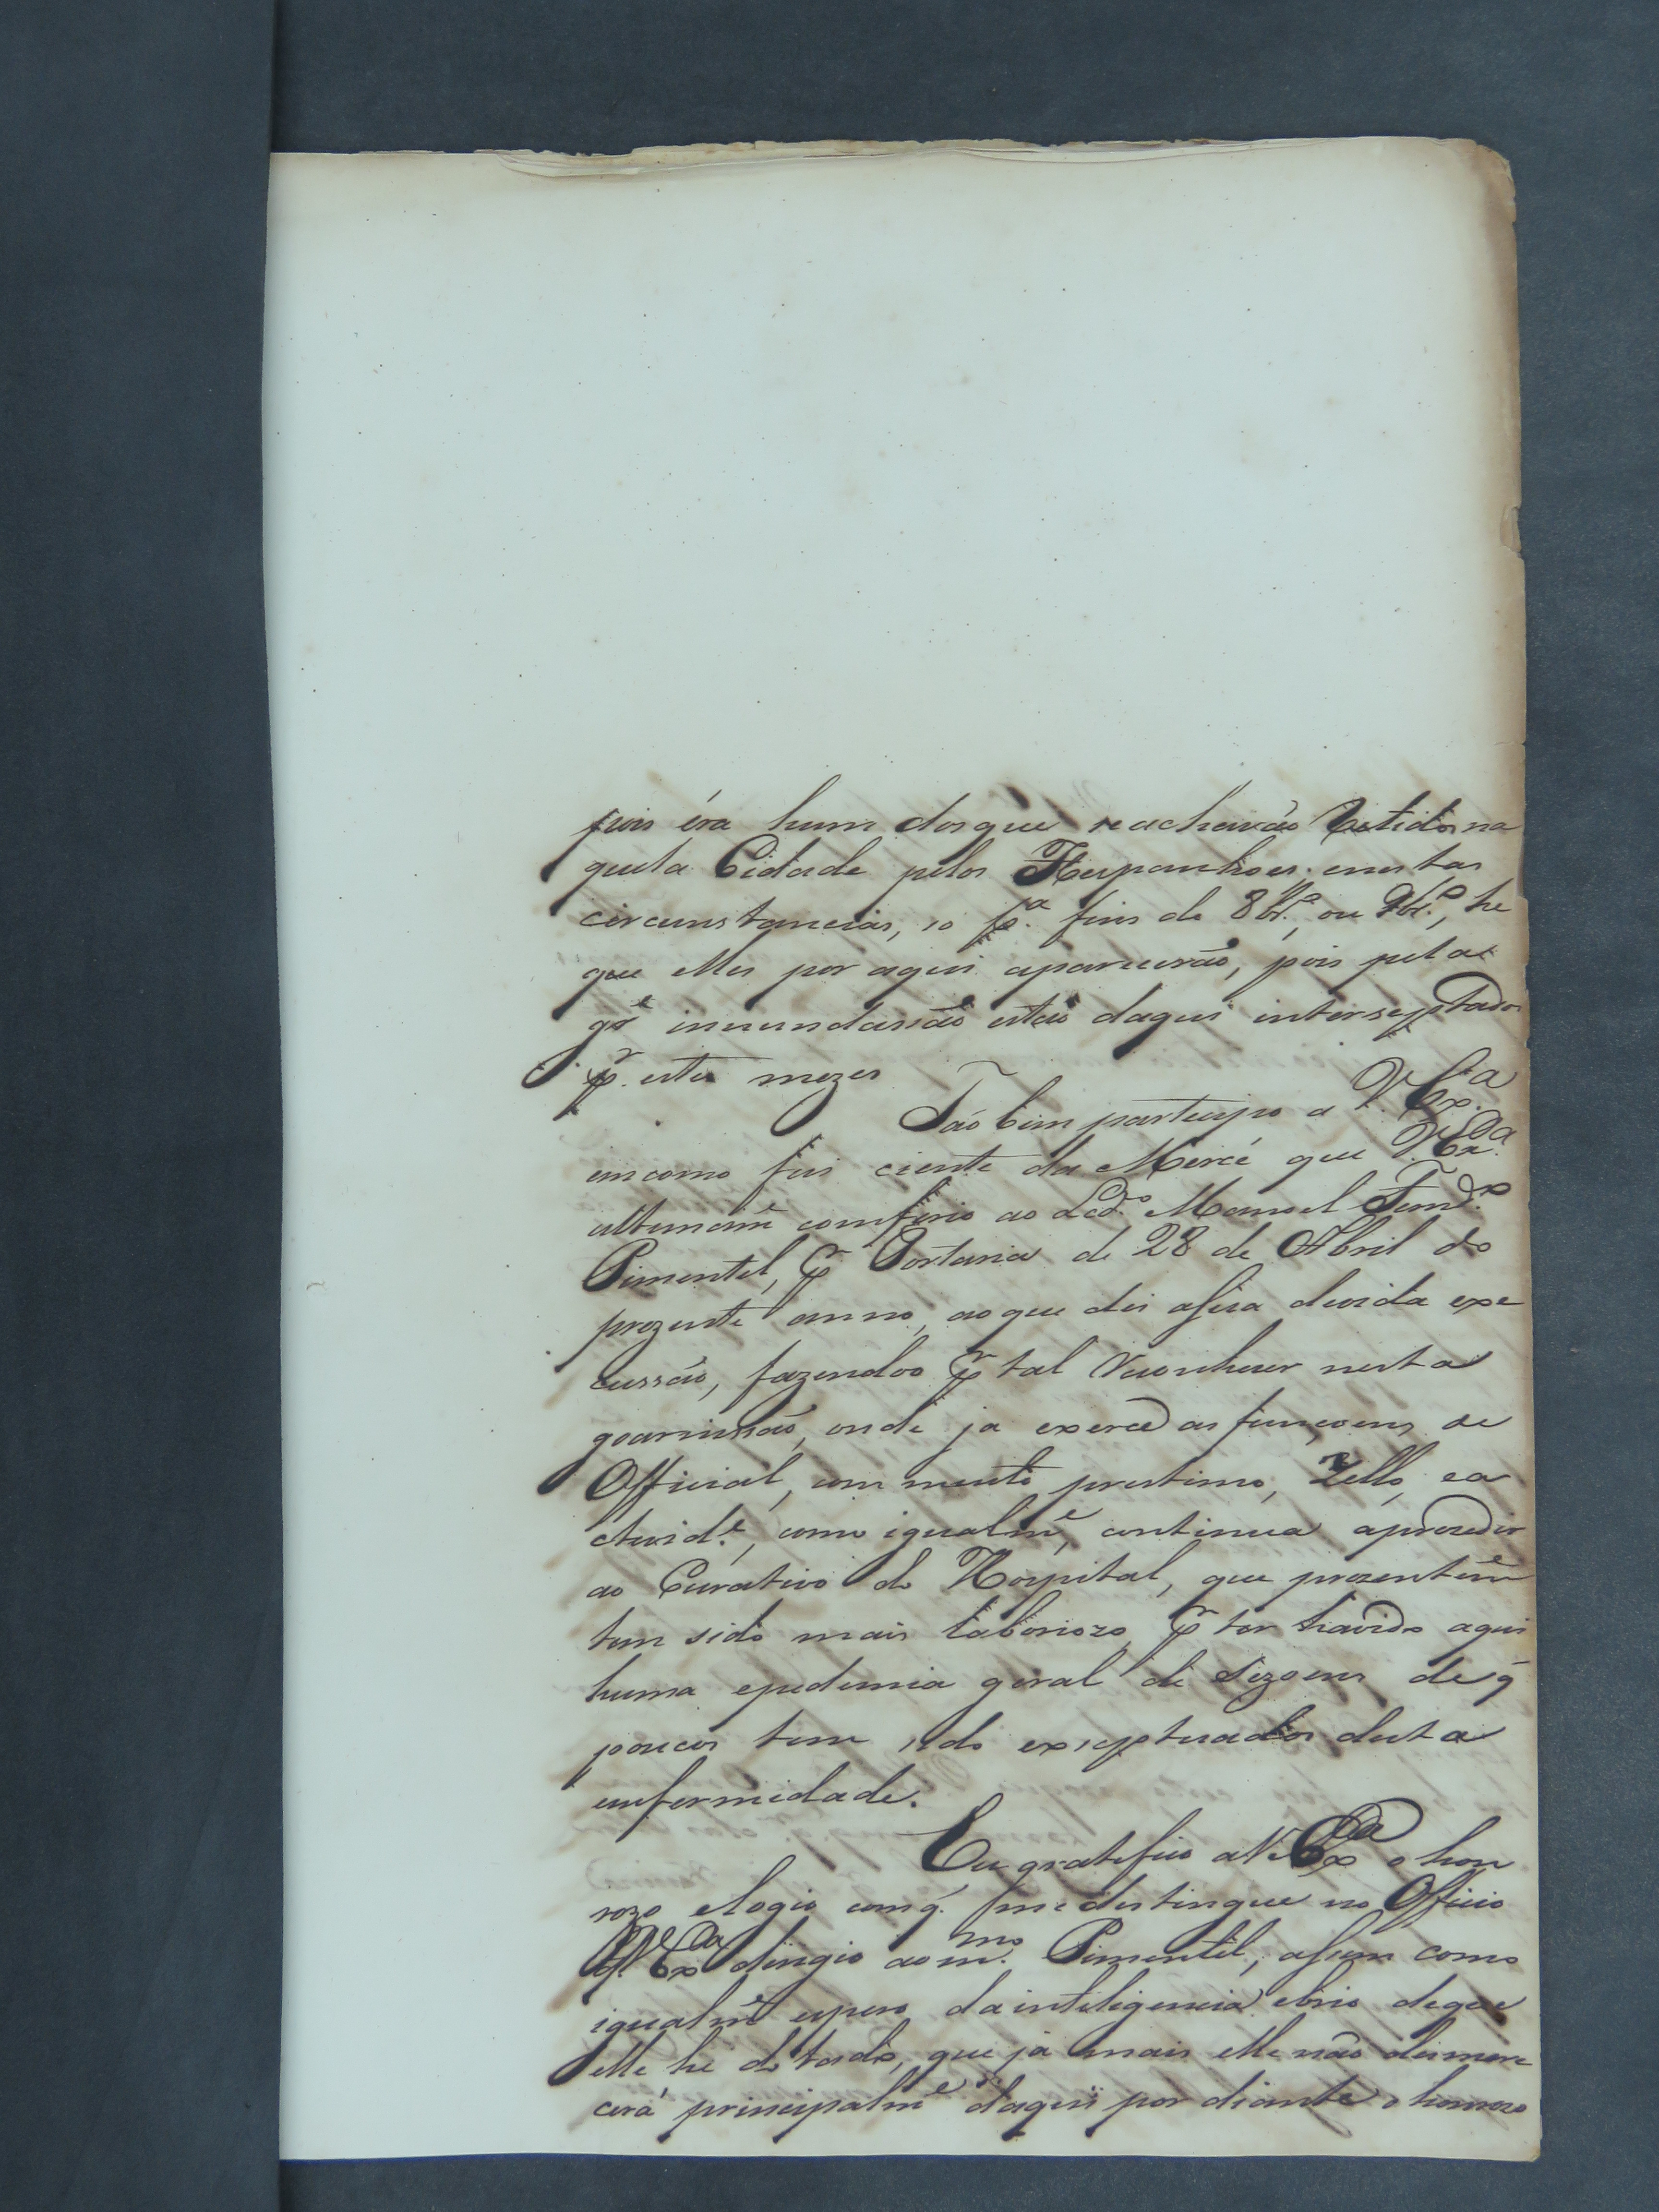 pois éra hum dos que se achavão retidos na
quela Cidade pelos Hespanhoes; em tas
circunstancias, so p.ª fins de 8br.º, ou 9br.º, he
que elles por aqui aparecerão, pois pela
g.de inundasão estão daqui interseptados
p.r estes mezes
Tão bem participo a V. Ex.ª
em como fui ciente da Mercé que V. Ex.ª
ultimam.e comferio ao Lcd.º Manoel Fernd.º
Pimentel, p.r Portaria de 28 de Abril do
prezente anno, ao que dei a sua devida exe
cussão, fazendoo p.r tal reconhecer nesta
goarnisão, onde ja exerce as funçoens de
Official, com muito prestimo, Zello, ea
ctivid.e, como igualm.e, continua a proceder
ao Curativo do Hospital, que prezentem.e
tem sido mais laboriozo p.r ter havido aqui
huma epedemia geral de Sezoens de q
poucos tem sido exseptuados desta
emfermidade.
Eu gratefico a V. Ex.ª o hon
rozo elogio com q. me destingue no Officio
q. V. Ex.ª dirigio ao m.mo Pimentel, assim como
igualm.e espero da inteligencia e brio de que
elle hé dotado, que ja mais elle não desmere
cerá principalm.e daqui por diante o honrozo